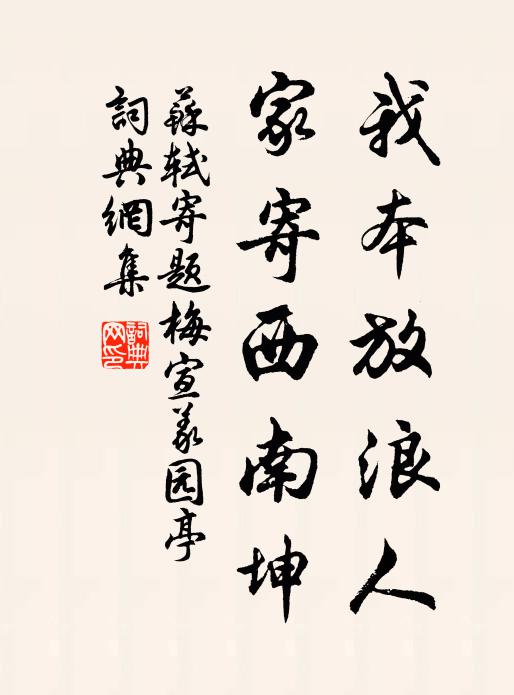 我本放浪人
家寄西南坤
蘇軾寄題梅宣义园亭
詞典網集
詞典網印